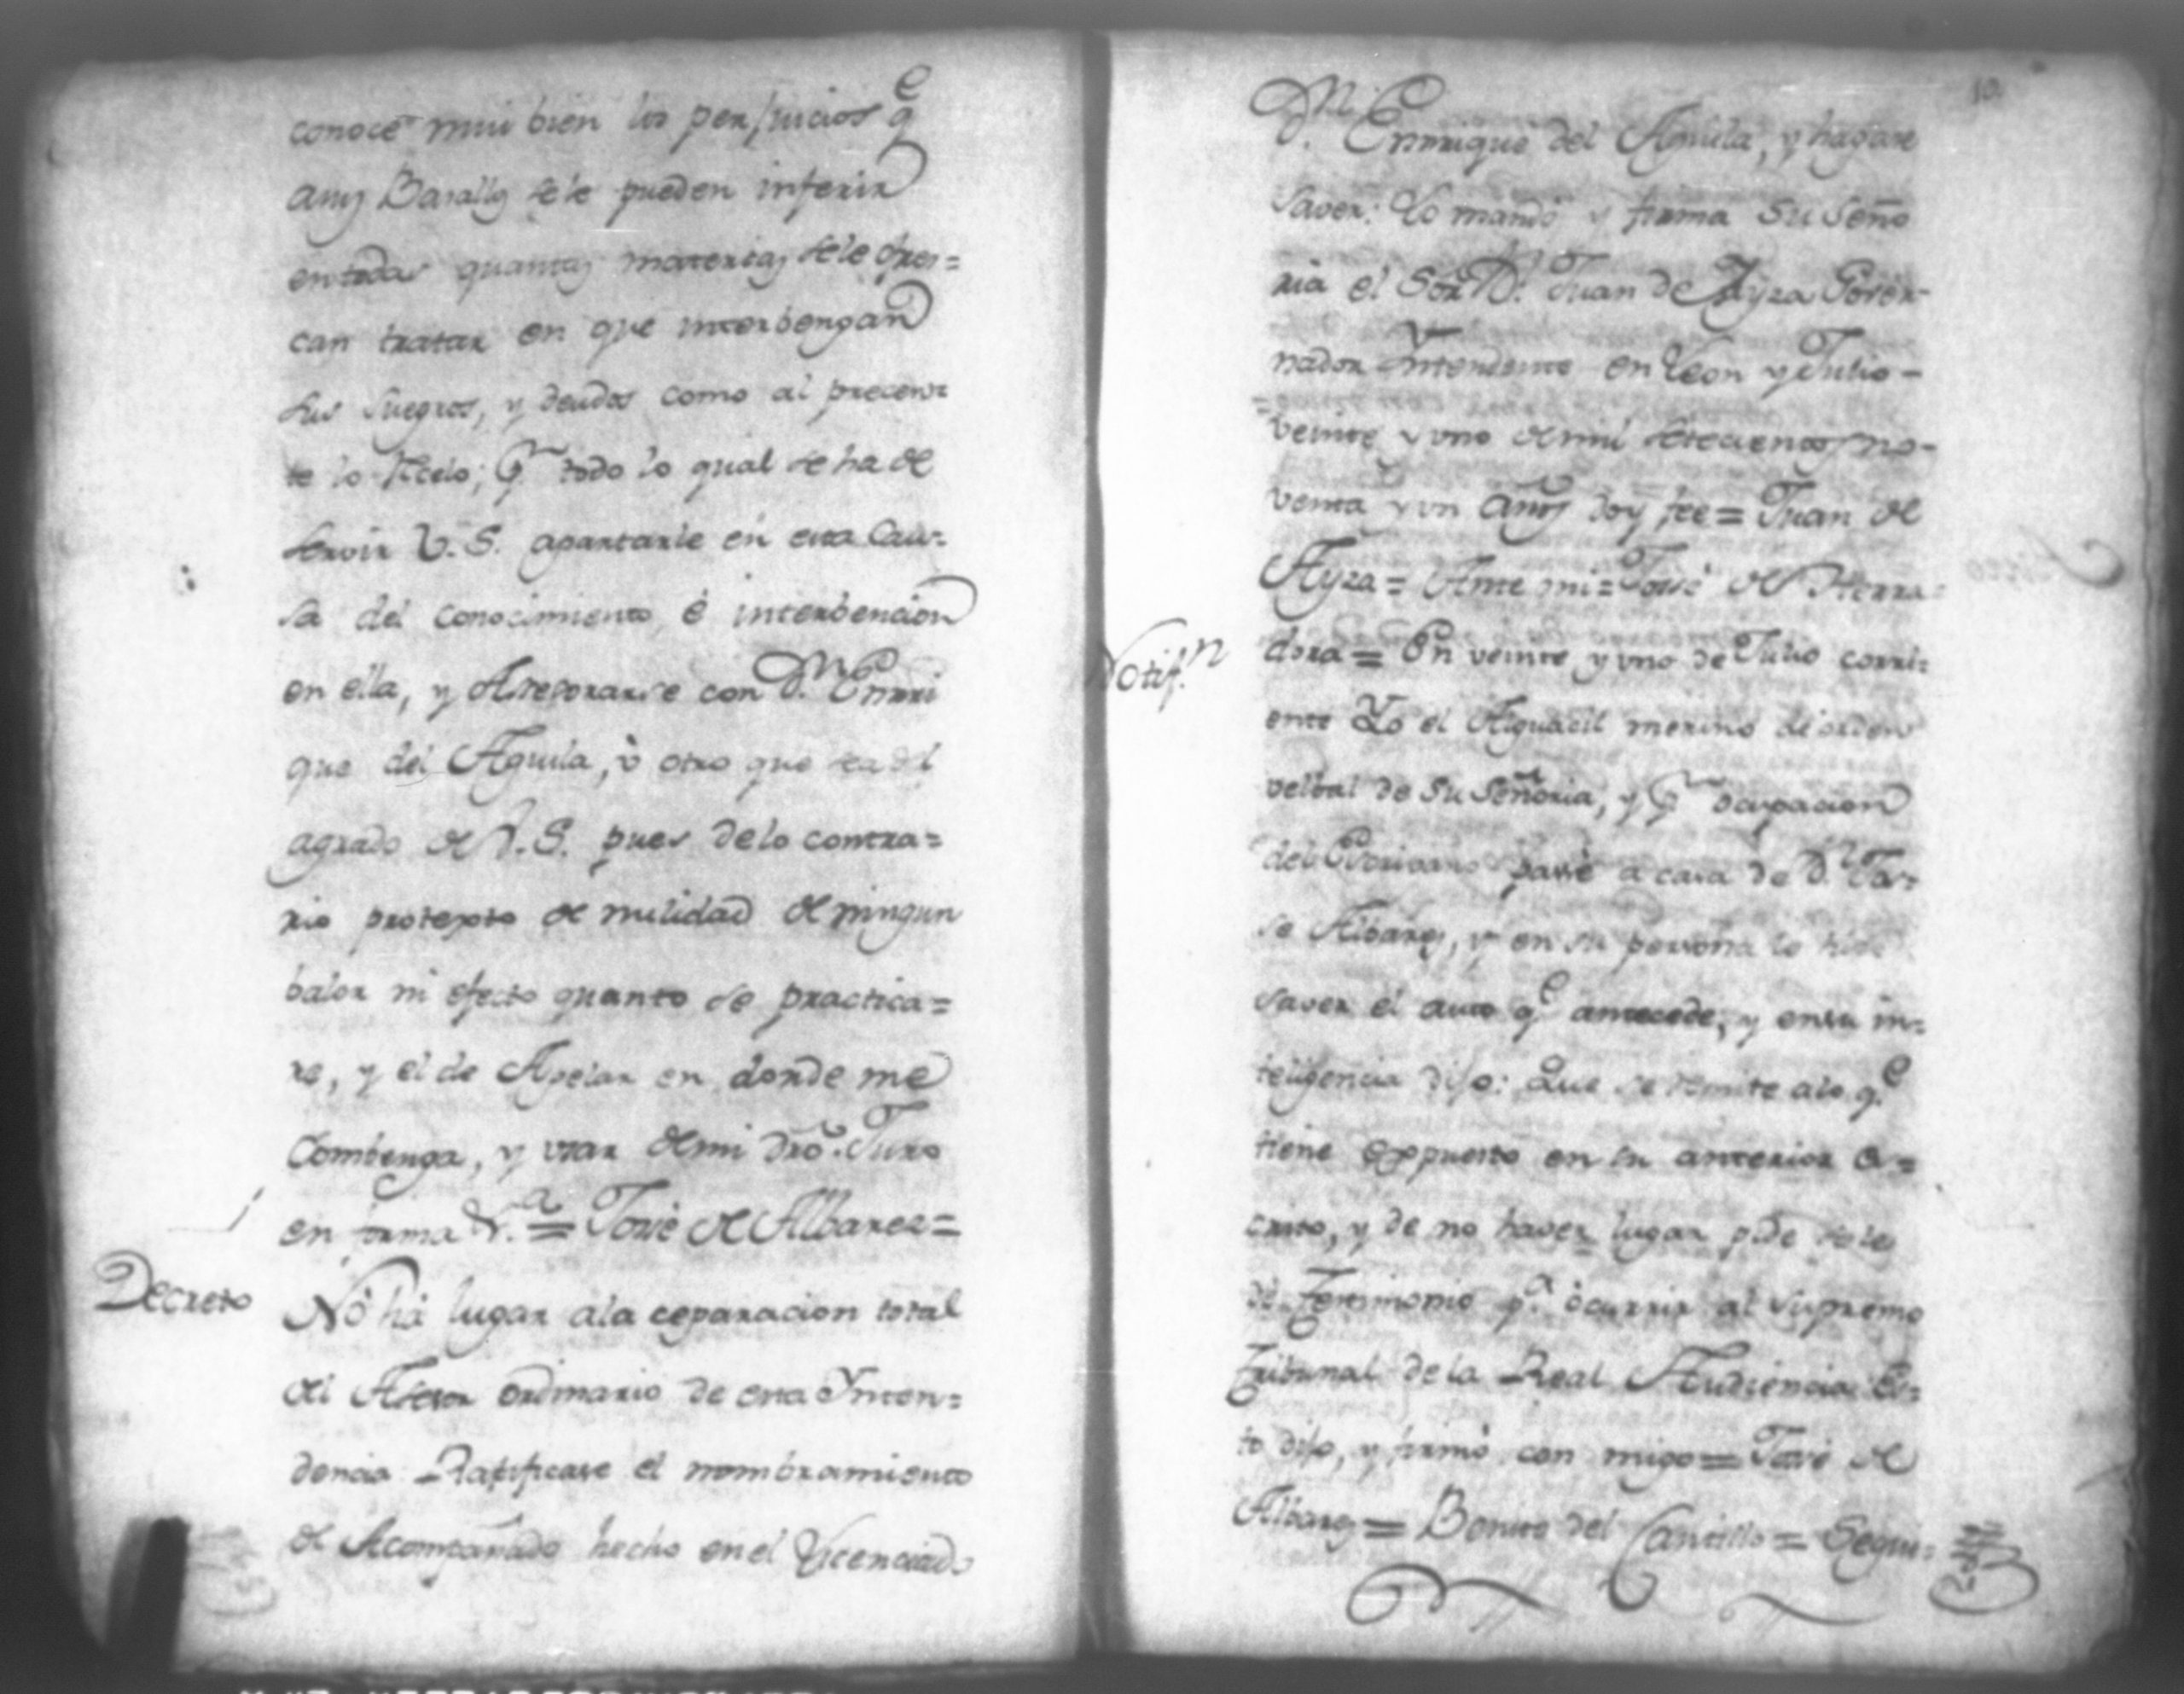 conoce mui bien los perjuicios q.e
a un Basallo se le pueden inferir
en todas quantas materias se le ofres=
can tratar en que interbengan
sus suegros, y deudos como al precen
te lo; p.r todo lo qual se ha de
servir V.S. apartarle en esta Cau=
sa del conocimiento, é interbencion
en ella, y Asesorarse con D.n Enrri
que del Aguila, ò otro que sea del
agrado de V.S. pues de lo contra=
rio protexto de nulidad de ningun
balor ni efecto quanto se practica=
re, y el de Apelar en donde me
Combenga, y usar de mi dro. Juro
en forma V.a = José de Albarez =
Decreto
No há lugar ala ceparacion total
del Asesor ordinario de esta Ynten=
dencia: Ratifícase el nombramiento
de Acompañado hecho en el Licenciado
10
D.n Enrrique del Aguila, y hagase
saver: Lo mandó y firma Su Seño
ria el Sor. D.n Juan de Ayza Gover=
nador Yntendente en Leon y Julio-
veinte y uno de mil setecientos no-
venta y un años doy fee = Juan de
Ayza = Ante mi = José de Herra
dora = En veinte y uno de Julio corri=
Notif.n
ente Yo el Alguacil merino de orden
velbal de Su Señoria, y p.r ocupacion
del Escrivano pasé a casa de D.n Jo=
se Albarez, y en su persona le hise
saver el auto q.e antecede, y en su in=
teligencia dijo: Que se remite alo q.e
tiene exppuesto en su anterior es=
crito, y de no haver lugar pide se le
dé Testimonio p.a ocurrir al Supremo
Tribunal de la Real Audiencia Es=
to dijo, y firmó con migo = José de
Albarez = Benito del Cantillo = Segui=